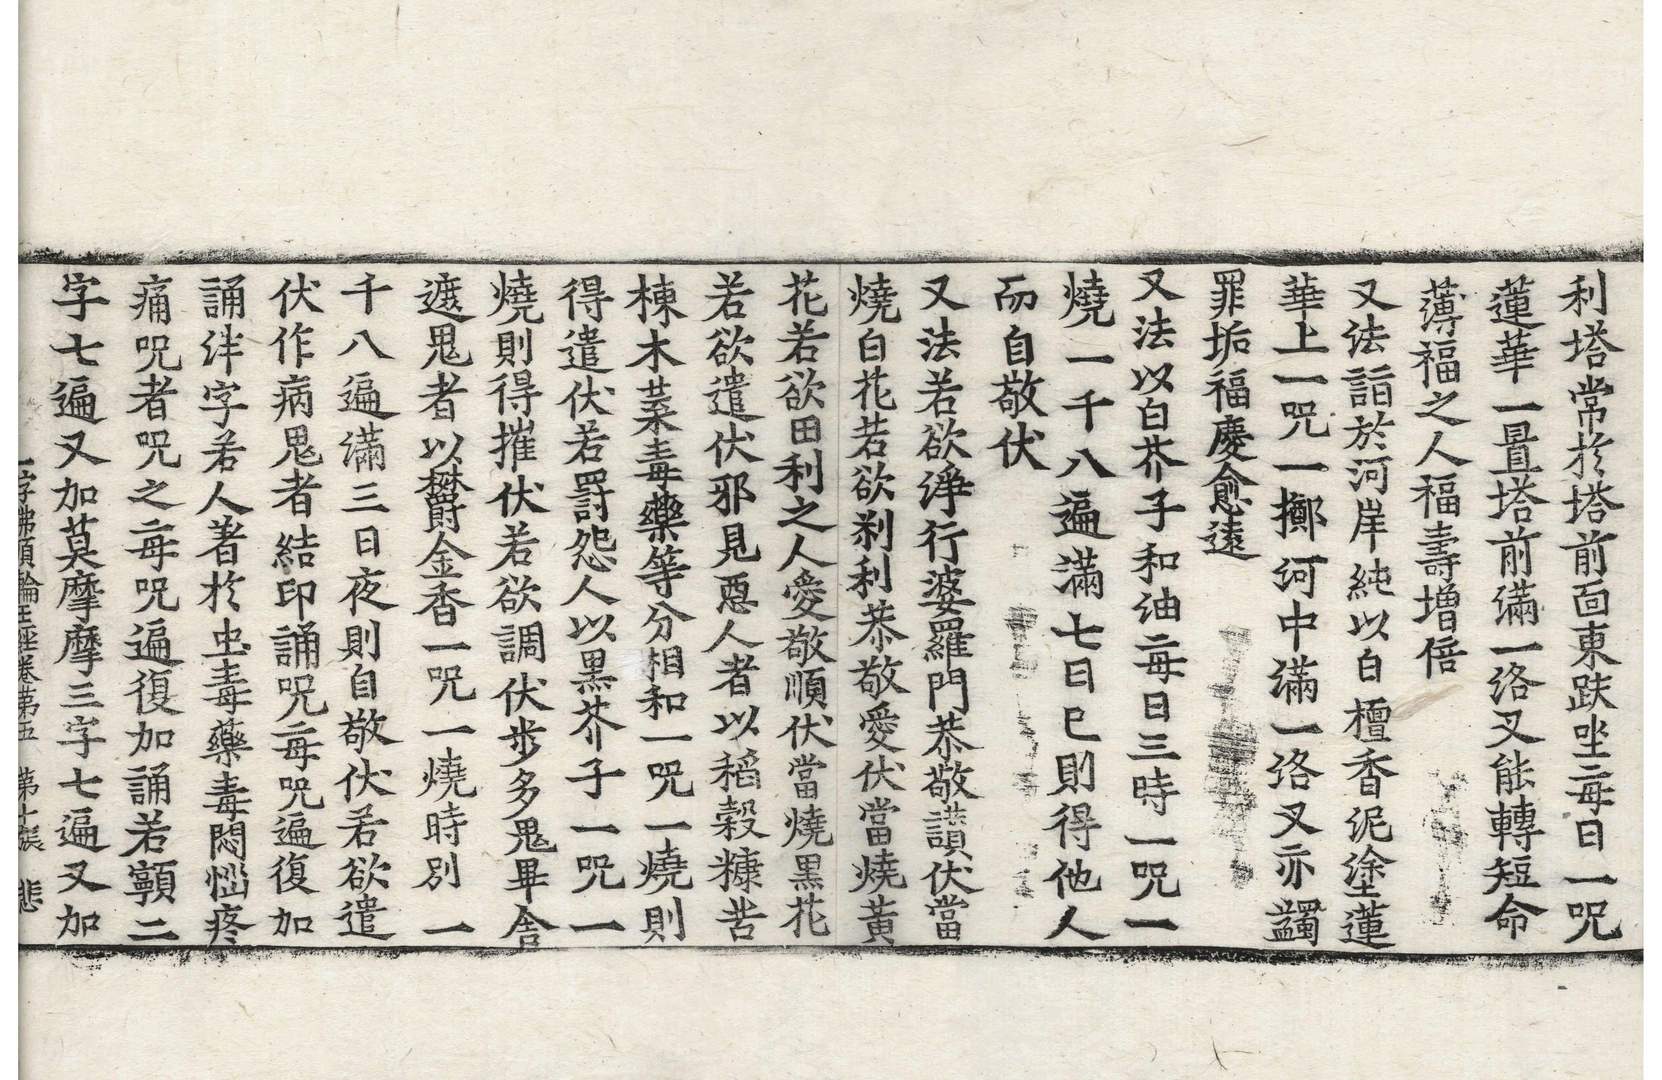 利塔常於塔前面東趺坐每日一呪
蓮華一置塔前滿一洛叉能轉短命
薄福之人福壽增倍
又法詣於河岸純以白檀香泥塗蓮
華上一呪一擲河中滿一洛叉亦蠲
罪垢福慶愈遠
又法以白芥子和油每日三時一呪一
燒一千八遍滿七日已則得他人
而自敬伏
又法若欲淨行婆羅門恭敬讚伏當
燒白花若欲刹利恭敬愛伏當燒黃
花若欲田利之人愛敬順伏當燒黑花
若欲遣伏邪見惡人者以稻穀糠苦
楝木葉毒藥等分相和一呪一燒則
得遣伏若罸怨人以黑芥子一呪一
燒則得摧伏若欲調伏步多鬼畢舍
遮鬼者以欝金香一呪一燒時別一
千八遍滿三日夜則自敬伏若欲遣
伏作病鬼者結印誦呪每呪遍復加
誦泮字若人著於虫毒藥毒悶惱疼
痛呪者呪之每呪遍復加誦若顫二
字七遍又加莫摩摩三字七遍又加
一字佛頂輪王經卷第五 第十張 悲